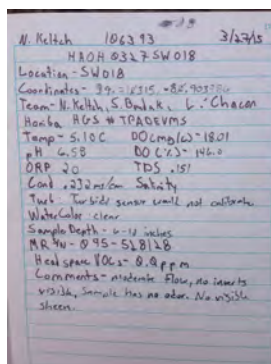 N. Keltch 106393 3/27/15
HAOH 0327SW018
Location - SW018
Coordinates -
Team - N. Keltch, S. Budak, L. Chacon
Horiba HGS # TPADEVMS
Temp - 5.10 C DO (mg/L) - 18.01
pH 6.58 DO (%) - 146.0
ORP 20 TDS .151
Cond .232 ms/cm Salinity
Turb Turbidity sensor would not calibrate
Water Color: clear
Sample Depth - 6-12 inches
MR #N - 095-518128
Head space VOCs - 0.0 ppm
Comments - moderate flow, no inverts
visible, Sample has no odor. No visible
sheen.